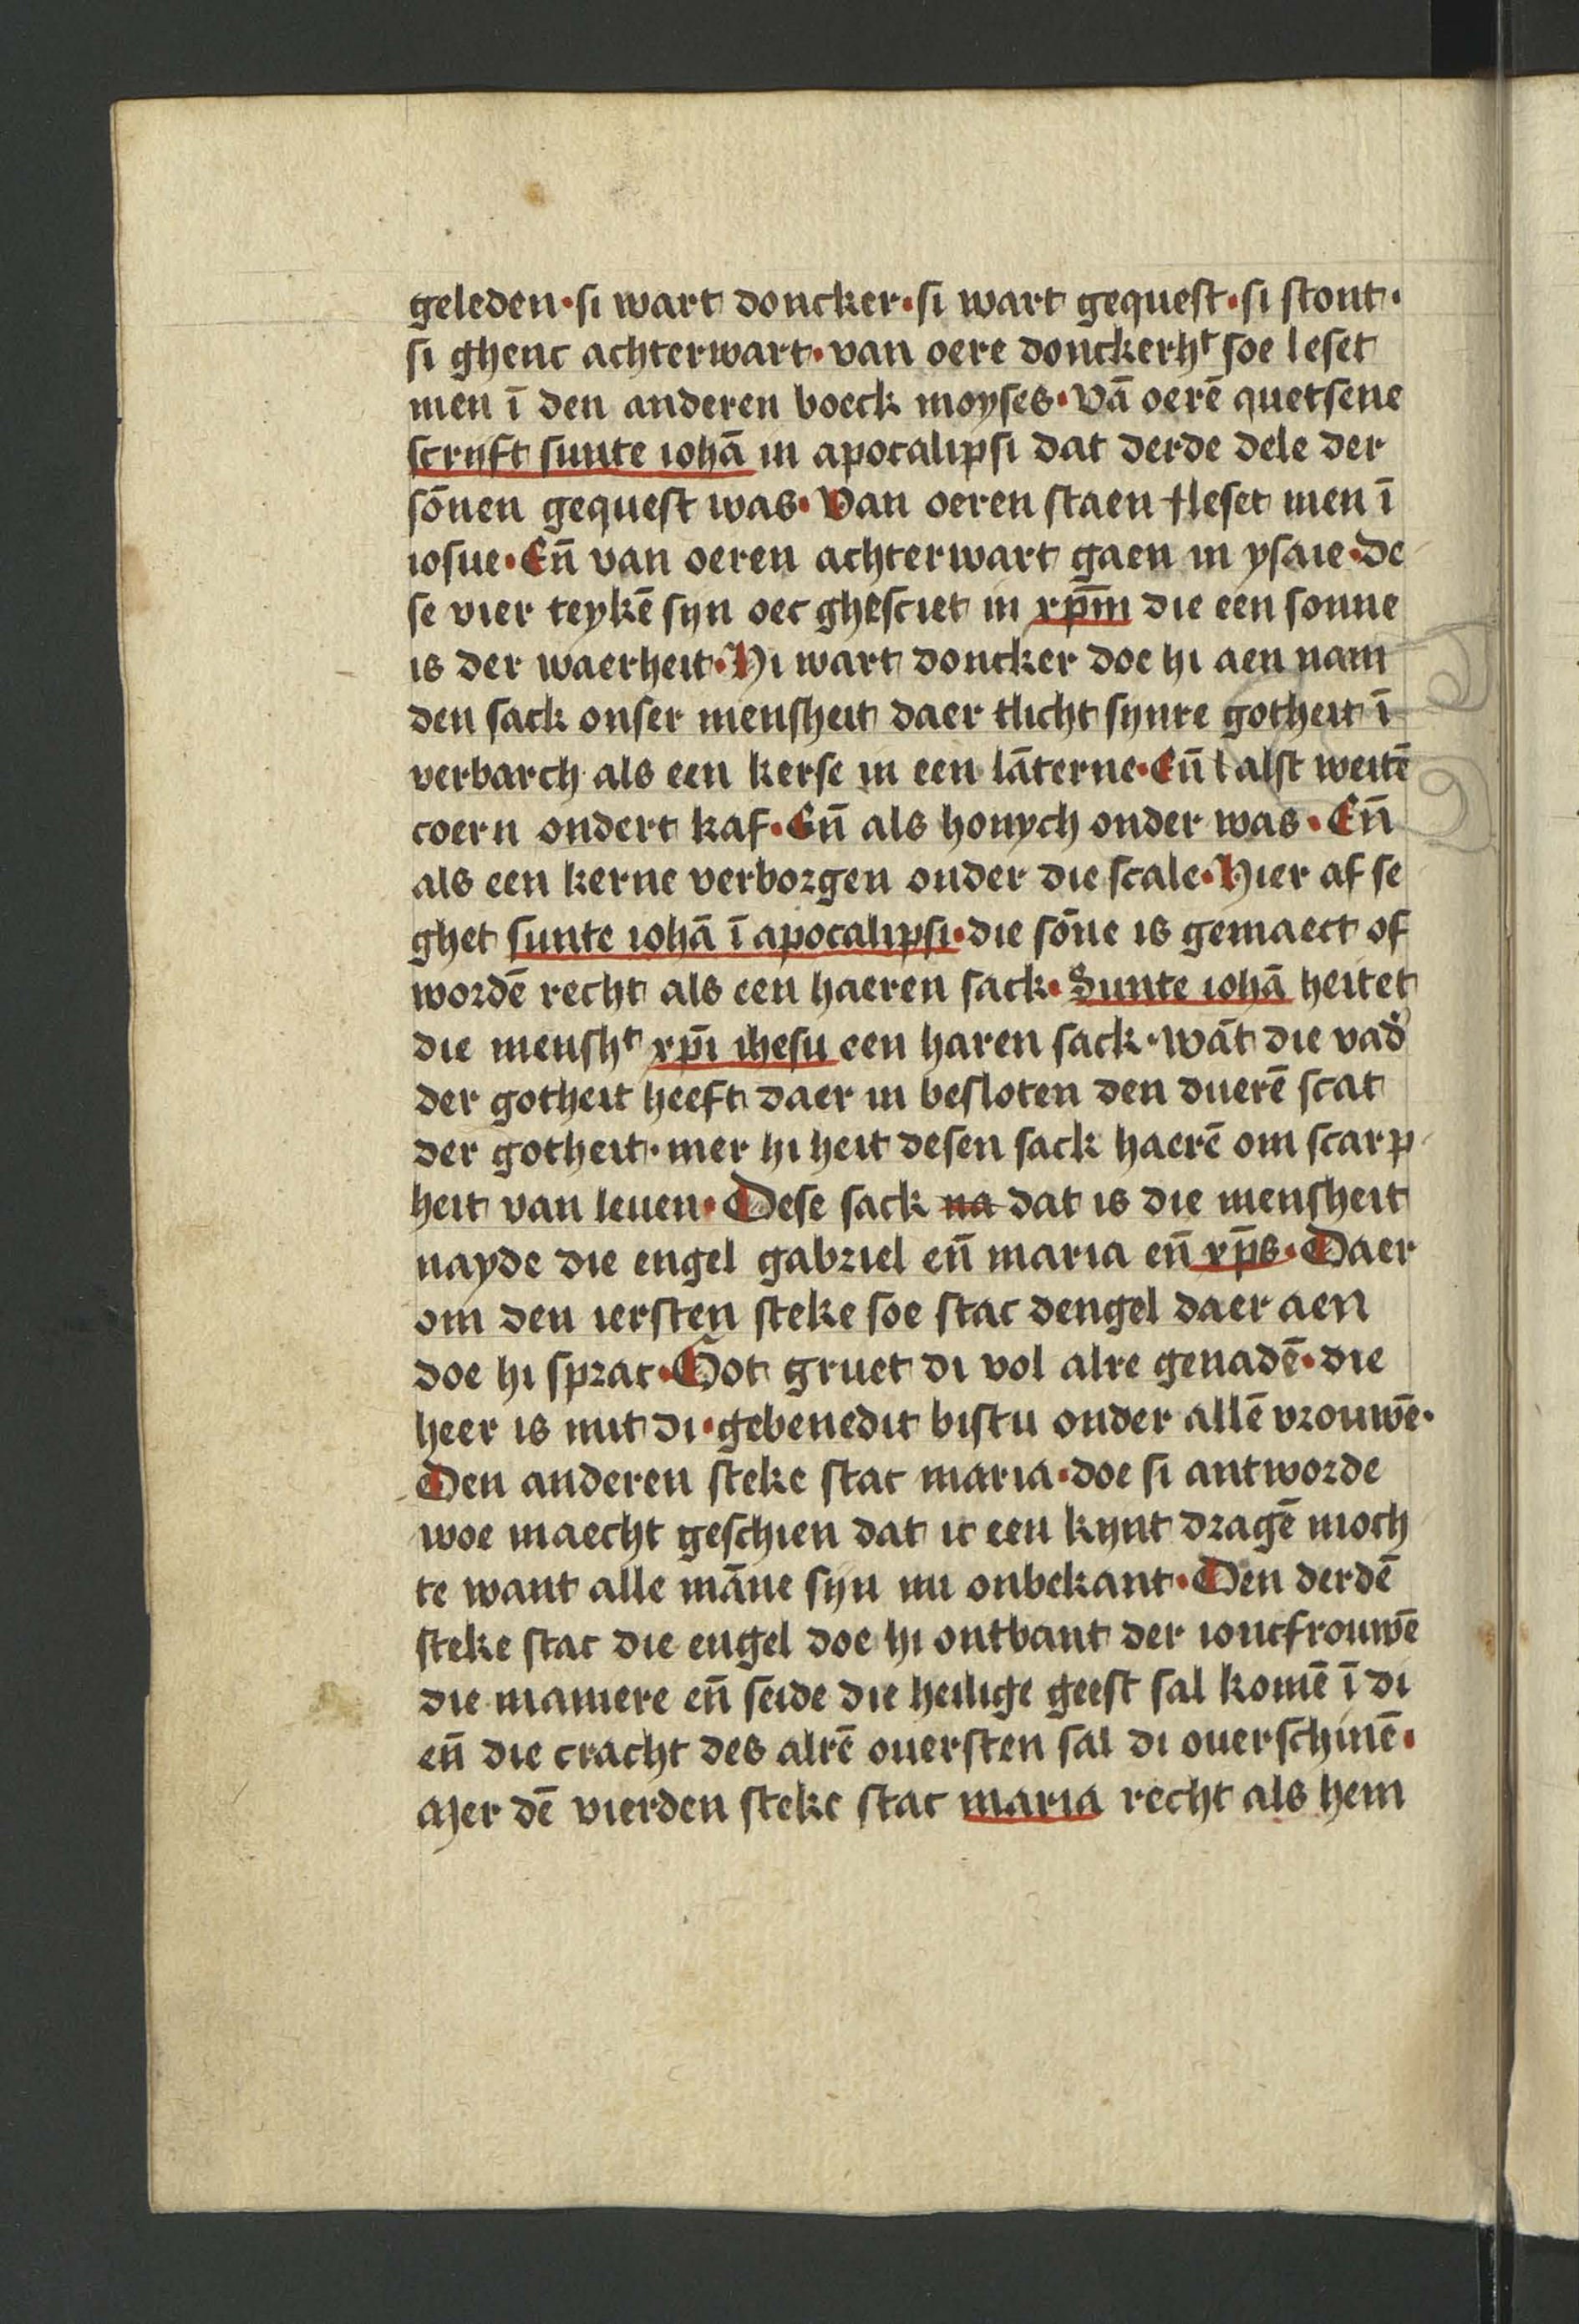 geleden·si wart doncker·si wart gequest·si stont·
si ghenc achterwart·van oere donckerhᵗ soe leset
men ī den anderen boeck moyses·Vā oerē quetsene
scryft sunte iohā in apocalipsi dat derde dele der
sōnen gequest was·Van oeren staen leset men ī
iosue·Eñ van oeren achterwart gaen in ysaie·de
se vier teykē syn oec ghesciet in xp̄m die een sonne
is der waerheit·Hi wart doncker doe hi aen nam
den sack onser mensheit daer tlicht synre gotheit ī
verbarch als een kerse in een lāterne·Eñ alst weitē
coern ondert kaf·Eñ als honych onder was·Eñ
als een kerne verborgen onder die scale·Hier af se
ghet sunte iohā ī apocalipsi·die sōne is gemaect of
wordē recht als een haeren sack·Sunte iohā heitet
die menshᵗ xp̄i ihesu een haren sack·wāt die vad̛
der gotheit heeft daer in besloten den duerē scat
der gotheit·mer hi heit desen sack haerē om scarp
heit van leuen·Dese sack na dat is die mensheit
nayde die engel gabriel eñ maria eñ xp̄s·Daer
om den iersten steke soe stac dengel daer aen
doe hi sprac·Got gruet di vol alre genadē·die
heer is mit di·gebenedit bistu onder allē vrouwē·
Den anderen steke stac maria·doe si antworde
woe maecht geschien dat ic een kynt dragē moch
te want alle māne syn mi onbekant·Den derdē
steke stac die engel doe hi ontbant der ioncfrouwē
die maniere eñ seide die heilige geest sal komē ī di
eñ die cracht des alrē ouersten sal di ouerschinē·
Mer dē vierden steke stac maria recht als hem